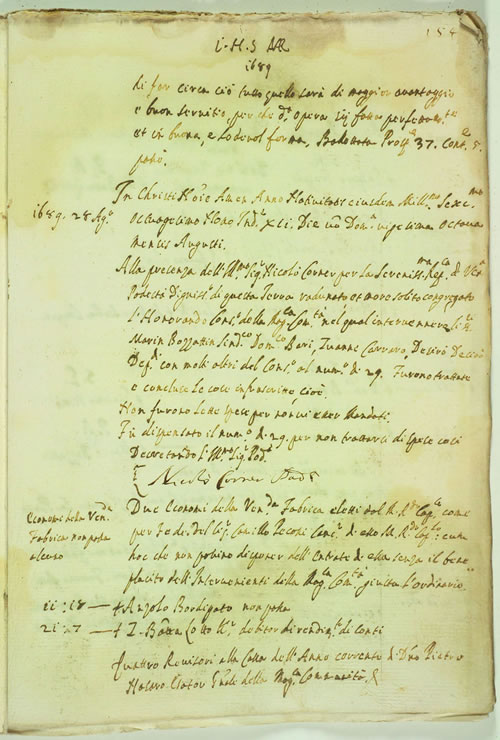 I. H. S. MR
1689
184
di far circa ciò tutto quello sarà di maggior avantaggio
e buon servitio, per che d.ª opera sij fatta perfettam.te
et in buona, e lodevol forma, Ballottata Pros.e 37. Cont.e 5.
In Christi No.ie Amen. Anno Nativitatis eiusdem Mill.mo Sexc.mo
1689. 28 Ag.o
Octuagesimo Nono Ind.e XII. Die vero Dom.ca vigesima octava
mensis Augusti.
Alla presenza dell'Ill.mo Sig.r Nicolò Corner per la Sereniss.ma Rep.ca di Ven.a
Podestà Digniss.o di questa Terra radunato et more solito congregato
l'Honorando Cons.o della Mag.ca Com.tà, nel qual intervennero li
Marin Bozzattin Sind.co Dom.co Bari, Zuanni Carraro,
Dep.ti con molti altri del Cons.o al num.o di 29. Furono trattate
e concluse le cose infrascritte cioè.
Non furono lette spese per non vi esser Mandati.
Fù dispensato il num.o di 29. per non trattarsi di spese così
Decretando l'Ill.mo Sig.r Pod.à
Nicolò Corner Pod.à
Economi della Ven.da
Fabrica non poss.a
Due Economi della Ven.da Fabrica eletti dal R. R.do Cap.lo come
per Fede del Sig.r Camillo Canc.e di esso M. R.do Cap.lo: cum
hoc che non possino disponer dell'Entrate di essa senza il bene
placito dell'Intervenienti della Mag.ca Com.tà giusta l'ordinario
11 : 18 — + Anzolo Bordigato non poss.a
21 : 7 — + Z. Batta Cotto debitor di rendim.ti di conti
Quattro Revisori alla Cassa dell'Anno corrente di D.no Pietro
della Mag.ca Communità